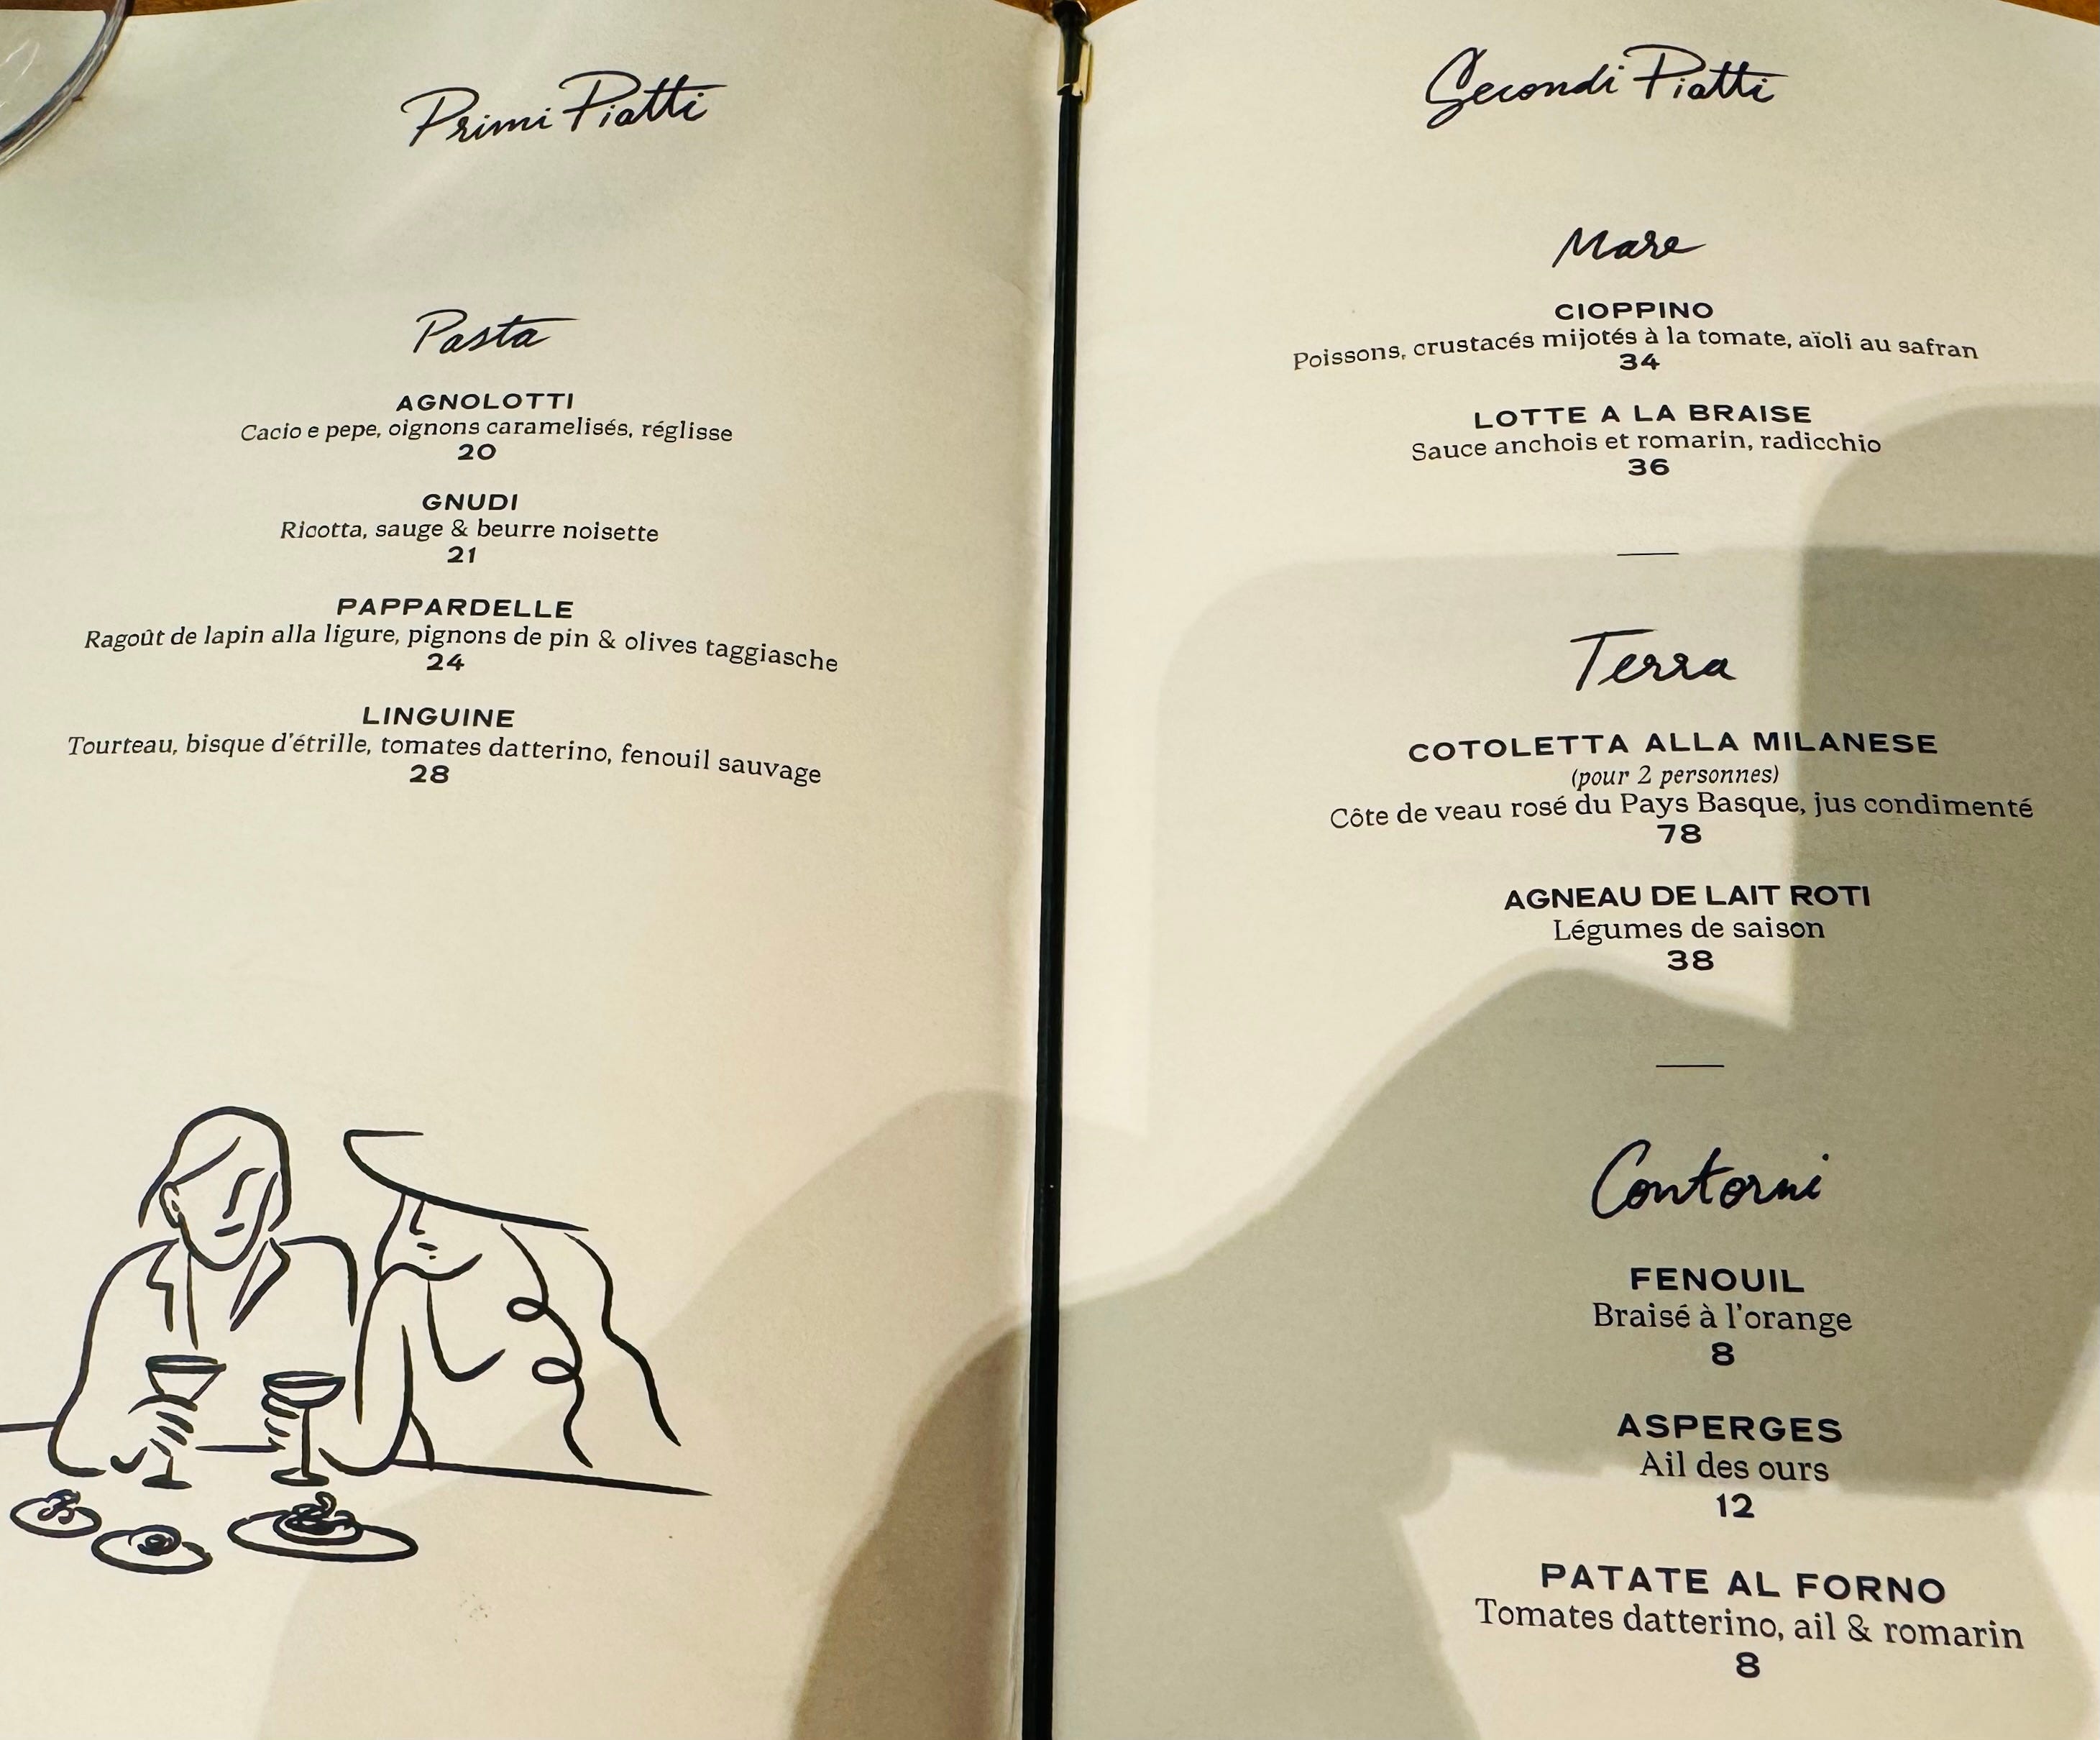 Primi Piatti
Pasta
AGNOLOTTI
Cacio e pepe, oignons caramelisés, réglisse
20
GNUDI
Ricotta, sauge & beurre noisette
21
PAPPARDELLE
Ragoût de lapin alla ligure, pignons de pin & olives taggiasche
24
LINGUINE
Tourteau, bisque d'étrille, tomates datterino, fenouil sauvage
28
Secondi Piatti
Mare
CIOPPINO
Poissons, crustacés mijotés à la tomate, aïoli au safran
34
LOTTE A LA BRAISE
Sauce anchois et romarin, radicchio
36
Terra
COTOLETTA ALLA MILANESE
(pour 2 personnes)
Côte de veau rosé du Pays Basque, jus condimenté
78
AGNEAU DE LAIT ROTI
Légumes de saison
38
Contorni
FENOUIL
Braisé à l'orange
8
ASPERGES
Ail des ours
12
PATATE AL FORNO
Tomates datterino, ail & romarin
8